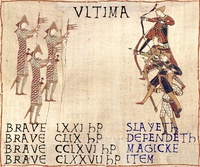 VLTIMA
BRAVE LXXI hp SLAYETH
BRAVE CLIX hp DEFENDETH
BRAVE CCLXVI hp MAGICKE
BRAVE CLXXVII hp ITEM